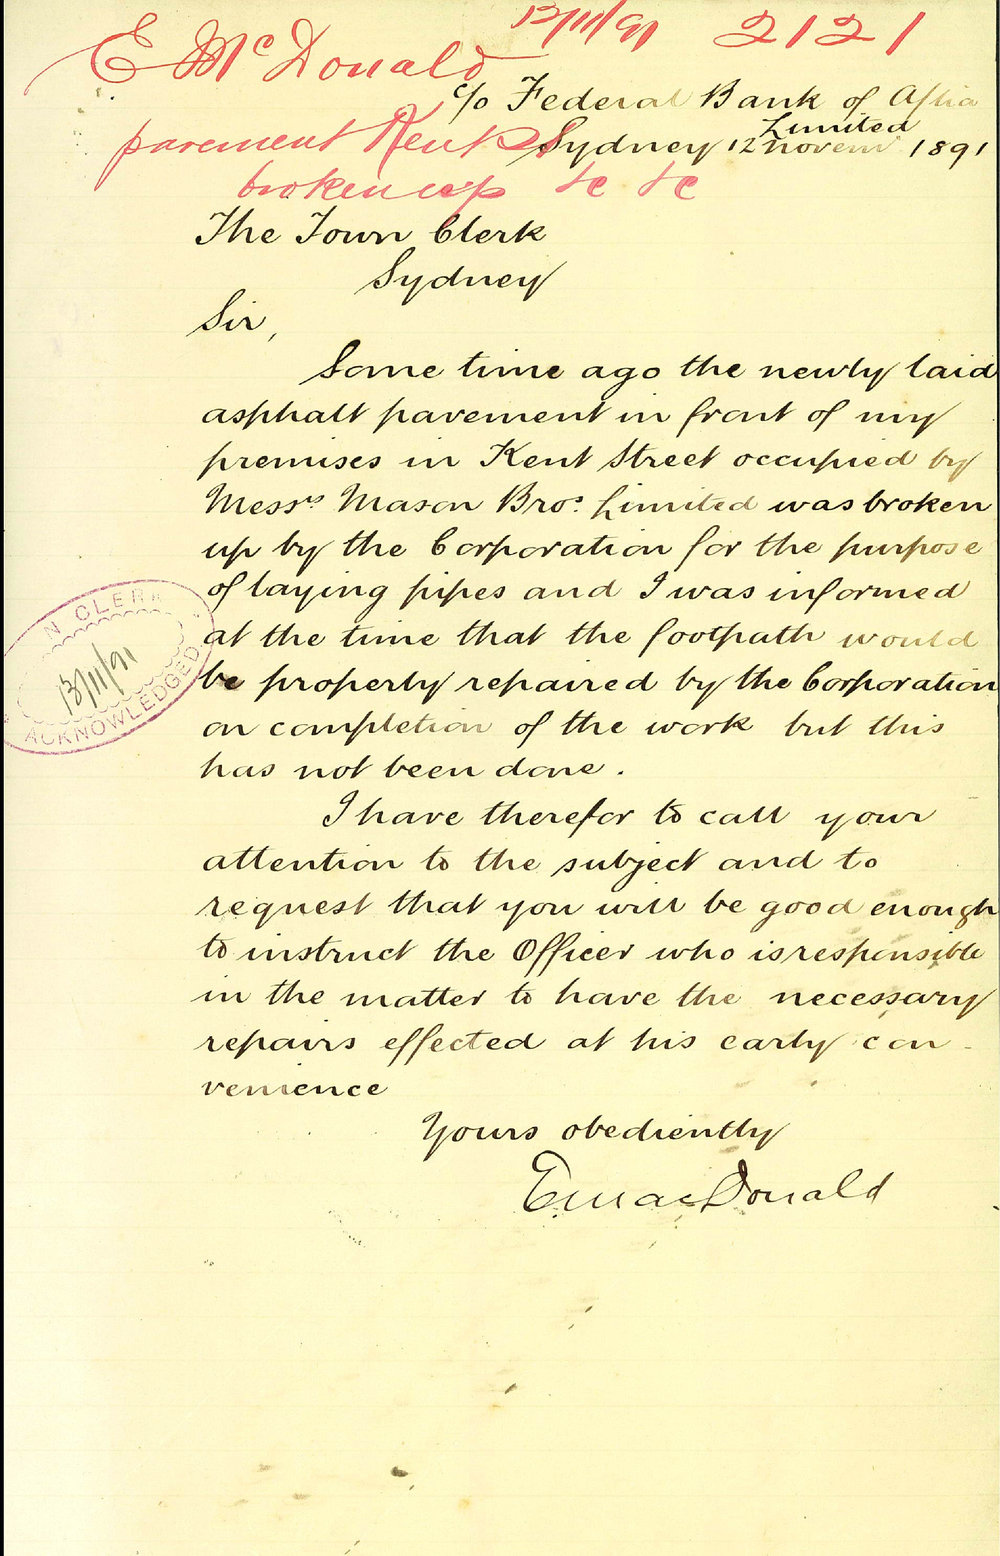 12/11/91 2121
E McDonald
c/o Federal Bank of A/lia
Limited
pavement Kent St
Sydney 12 Novem 1891
broken up &c &c
The Town Clerk
Sydney
Sir,
Some time ago the newly laid
asphalt pavement in front of my
premises in Kent Street occupied by
Messrs Mason Bros. Limited was broken
up by the Corporation for the purpose
of laying pipes and I was informed
at the time that the footpath would
be properly repaired by the Corporation
on completion of the work but this
has not been done.
I have therefor to call your
attention to the subject and to
request that you will be good enough
to instruct the Officer who is responsible
in the matter to have the necessary
repairs effected at his early con-
venience
Yours obediently
E MacDonald
N CLERK
13/11/91
ACKNOWLEDGED